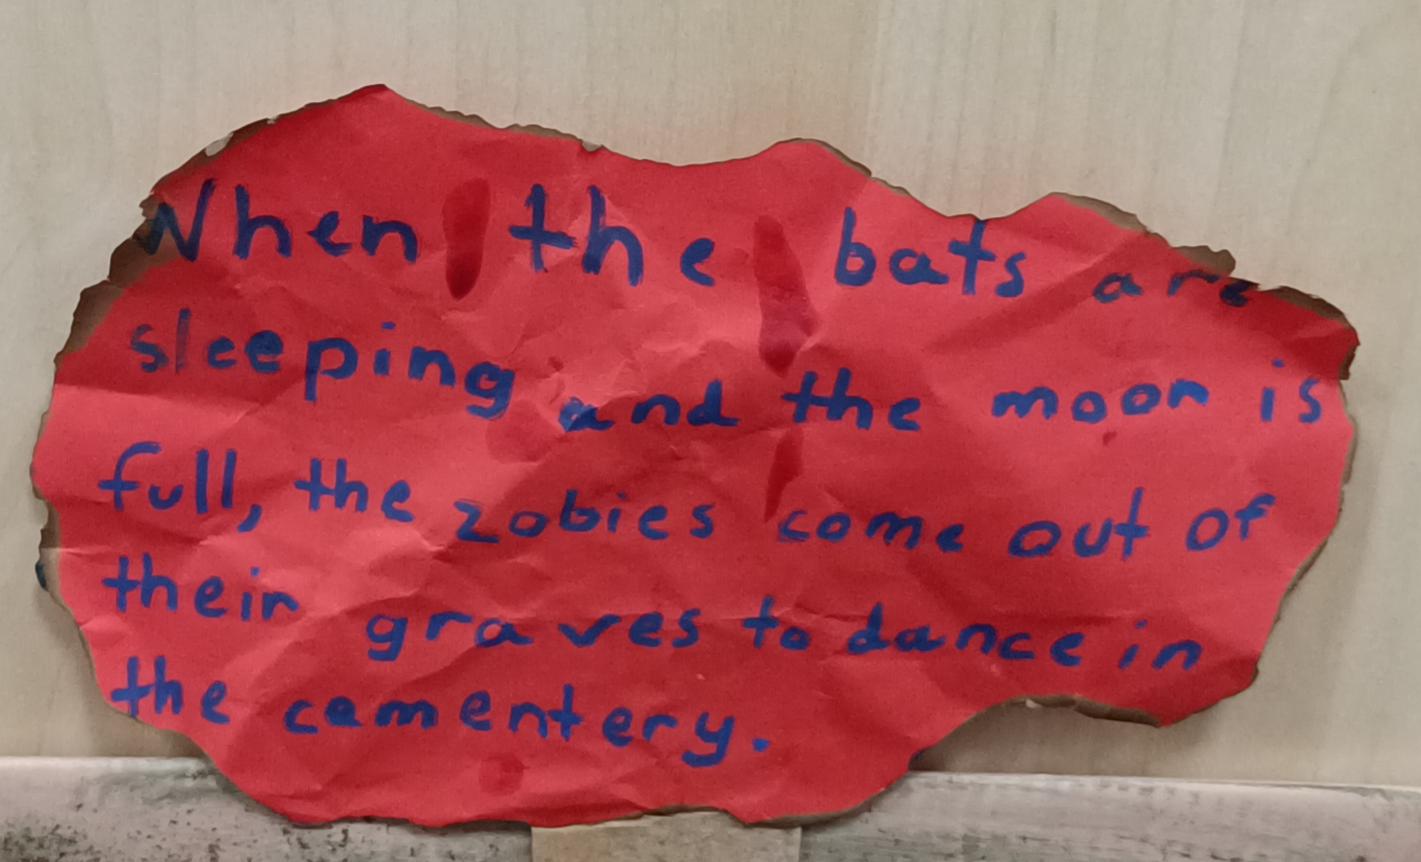 When the bats are
sleeping and the moon is
full, the zobies come out of
their graves to dance in
the cementery.